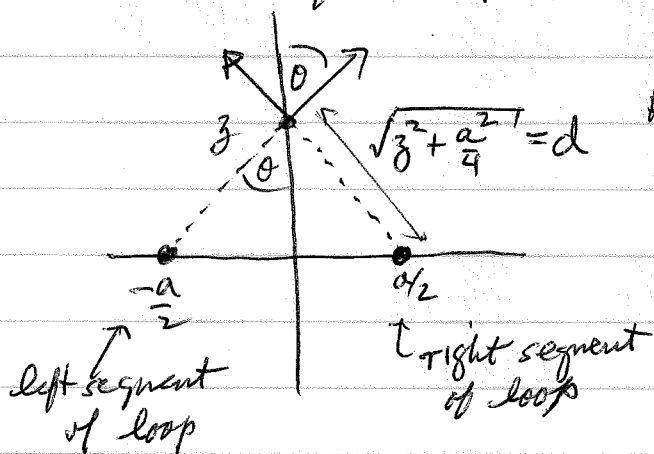 θ
z
√(z² + a²/4) = d
θ
-a/2
a/2
left segment
of loop
right segment
of loop